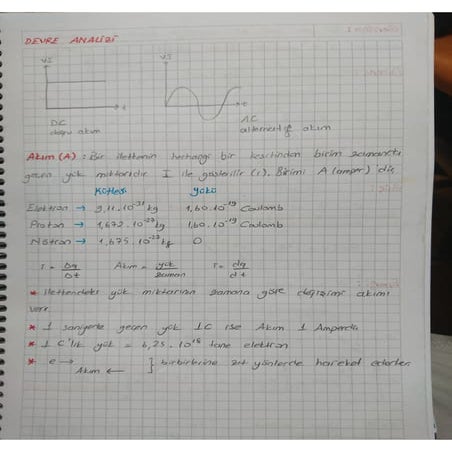 DEVRE ANALİZİ
V,I
V,I
t
t
DC
AC
doğru akım
alternatif akım
Akım (A) : Bir iletkenin herhangi bir kesitinden birim zamanda
geçen yük miktarıdır. I ile gösterilir (i). Birimi A (amper) dir.
Kütlesi Yükü
Elektron → 9,11.10⁻³¹ kg 1,60.10⁻¹⁹ Coulomb
Proton → 1,672.10⁻²⁷ kg 1,60.10⁻¹⁹ Coulomb
Nötron → 1,675.10⁻²⁷ kg 0
I = Δq / Δt Akım = yük / zaman I = dq / dt
* İletkendeki yük miktarının zamana göre değişimi akımı
verir.
* 1 saniyede geçen yük 1C ise Akım 1 Amperdir.
* 1 C'lik yük = 6,25.10¹⁸ tane elektron
* e →
Akım ← } birbirine zıt yönlerde hareket ederler.